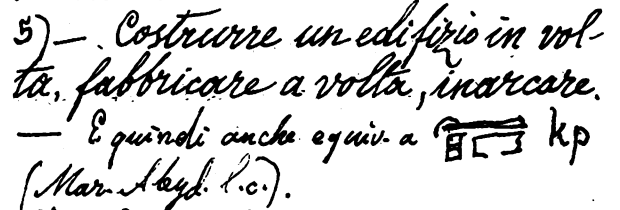 5) — . Costrurre un edifizio in vol-
ta, fabbricare a volta, inarcare.
— E quindi anche equiv. a kp
(Mar. Abyd. l.c.).